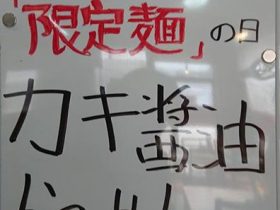 「限定麺」の日
カキ醤油